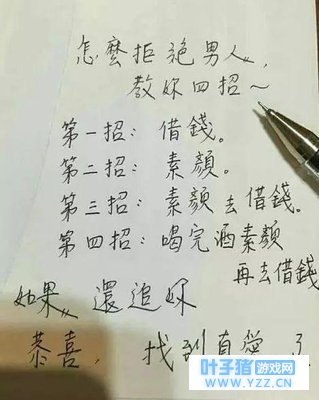 怎麼拒絕男人,
教妳四招～
第一招：借錢。
第二招：素顏。
第三招：素顏去借錢。
第四招：喝完酒素顏
再去借錢
如果,還追妳
恭喜,找到真愛了
叶子猪游戏网
WWW.YZZ.CN